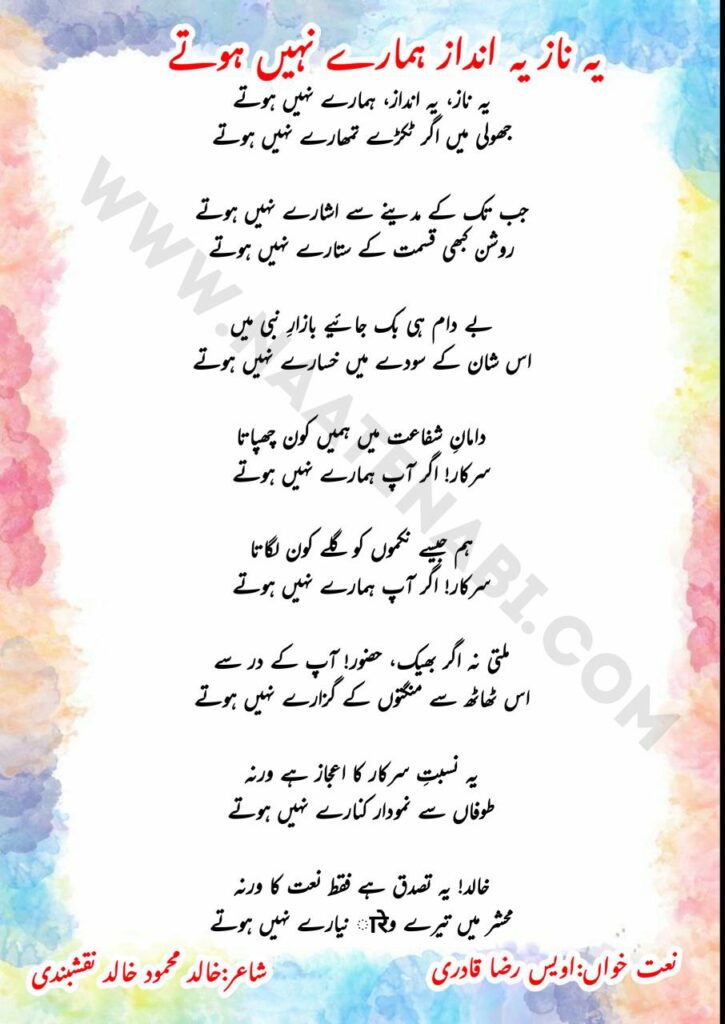 یہ ناز یہ انداز ہمارے نہیں ہوتے
یہ ناز، یہ انداز، ہمارے نہیں ہوتے
جھولی میں اگر ٹکڑے تمھارے نہیں ہوتے
جب تک کے مدینے سے اشارے نہیں ہوتے
روشن کبھی قسمت کے ستارے نہیں ہوتے
بے دام ہی بک جائیے بازارِ نبی میں
اس شان کے سودے میں خسارے نہیں ہوتے
دامانِ شفاعت میں ہمیں کون چھپاتا
سرکار! اگر آپ ہمارے نہیں ہوتے
ہم جیسے نکموں کو گلے کون لگاتا
سرکار! اگر آپ ہمارے نہیں ہوتے
ملتی نہ اگر بھیک، حضور! آپ کے در سے
اس ٹھاٹھ سے منگتوں کے گزارے نہیں ہوتے
یہ نسبتِ سرکار کا اعجاز ہے ورنہ
طوفاں سے نمودار کنارے نہیں ہوتے
خالد! یہ تصدق ہے فقط نعت کا ورنہ
محشر میں تیرے وारے نیارے نہیں ہوتے
نعت خواں:اویس رضا قادری
شاعر:خالد محمود خالد نقشبندی
WWW.NAATENABI.COM